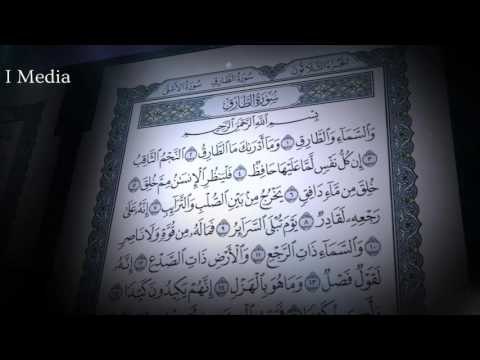 I Media
الجزء الثلاثون
سورة الطارق
سورة الأعلى
سُورَةُ الطَّارِقِ
بِسْمِ اللَّهِ الرَّحْمَٰنِ الرَّحِيمِ
وَالسَّمَاءِ وَالطَّارِقِ ١ وَمَا أَدْرَاكَ مَا الطَّارِقُ ٢ النَّجْمُ الثَّاقِبُ
٣ إِن كُلُّ نَفْسٍ لَّمَّا عَلَيْهَا حَافِظٌ ٤ فَلْيَنظُرِ الْإِنسَانُ مِمَّ خُلِقَ ٥
خُلِقَ مِن مَّاءٍ دَافِقٍ ٦ يَخْرُجُ مِن بَيْنِ الصُّلْبِ وَالتَّرَائِبِ ٧ إِنَّهُ عَلَىٰ
رَجْعِهِ لَقَادِرٌ ٨ يَوْمَ تُبْلَى السَّرَائِرُ ٩ فَمَا لَهُ مِن قُوَّةٍ وَلَا نَاصِرٍ
١٠ وَالسَّمَاءِ ذَاتِ الرَّجْعِ ١١ وَالْأَرْضِ ذَاتِ الصَّدْعِ ١٢ إِنَّهُ
لَقَوْلٌ فَصْلٌ ١٣ وَمَا هُوَ بِالْهَزْلِ ١٤ إِنَّهُمْ يَكِيدُونَ كَيْدًا ١٥